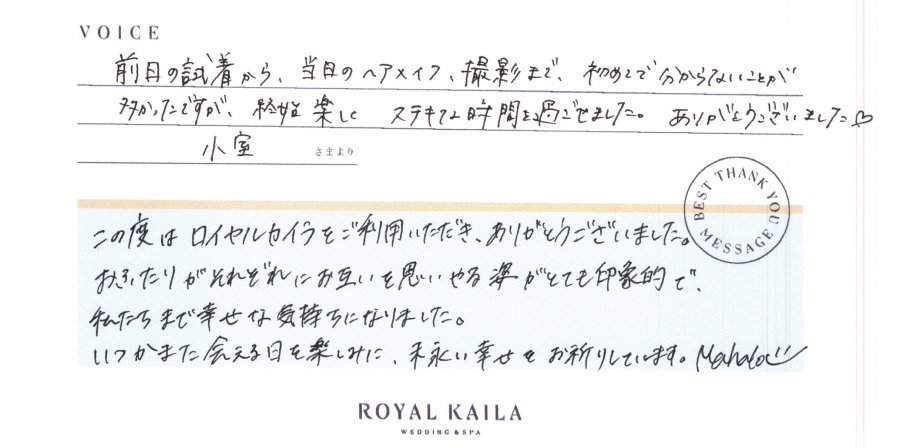 VOICE
前日の試着から、当日のヘアメイク、撮影まで、初めてで分からないことが
多かったですが、終始楽しく ステキな時間を過ごせました。ありがとうございました♡
小室 さまより
BEST THANK YOU MESSAGE
この度はロイヤルカイラをご利用いただき、ありがとうございました。
おふたりがそれぞれにお互いを思いやる姿がとても印象的で、
私たちまで幸せな気持ちになりました。
いつかまた会える日を楽しみに、末永い幸せをお祈りしています。Mahalo
ROYAL KAILA
WEDDING & SPA